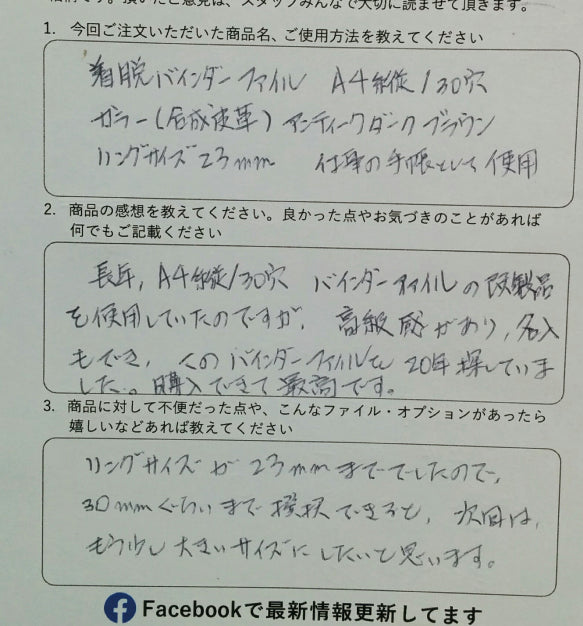 頂いたご意見は、スタッフみんなで大切に読ませて頂きます。
1. 今回ご注文いただいた商品名、ご使用方法を教えてください
着脱バインダーファイル A4縦/30穴
カラー(合成皮革) アンティークダークブラウン
リングサイズ23mm 仕事の手帳として使用
2. 商品の感想を教えてください。良かった点やお気づきのことがあれば
何でもご記載ください
長年, A4縦/30穴 バインダーファイルの既製品
を使用していたのですが, 高級感があり, 名入
もでき, このバインダーファイルを20年探していま
した。。購入できて最高です。
3. 商品に対して不便だった点や、こんなファイル・オプションがあったら
嬉しいなどあれば教えてください
リングサイズが23mmまででしたので,
30mmぐらいまで撰択できると, 次回は,
もう少し大きいサイズにしたいと思います。
Facebookで最新情報更新してます